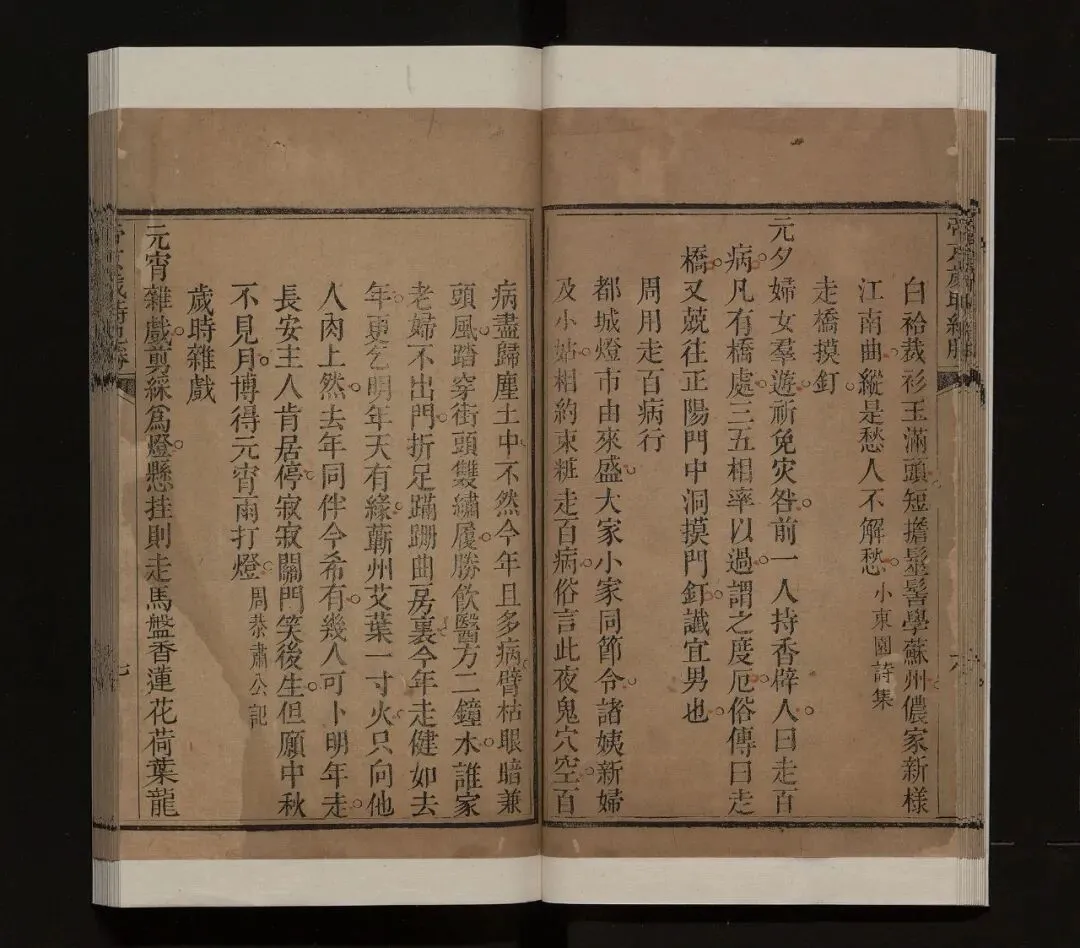 白袷裁衫玉滿頭短擔鬖髻學蘇州儂家新様
江南曲縱是愁人不解愁 小東園詩集
走橋摸釘
元夕婦女羣遊祈免灾咎前一人持香辟人曰走百
病凡有橋處三五相率以過謂之度厄俗傳曰走
橋又競往正陽門中洞摸門釘讖宜男也
周用走百病行
都城燈市由來盛大家小家同節令諸姨新婦
及小姑相約束粧走百病俗言此夜鬼穴空百
病盡歸塵土中不然今年且多病臂枯眼暗兼
頭風踏穿街頭雙繡履勝飲醫方二鐘水誰家
老婦不出門折足蹣跚曲房裏今年走健如去
年更乞明年天有緣蘄州艾葉一寸火只向他
人肉上然去年同伴今希有幾人可卜明年走
長安主人肯居停寂寂關門笑後生但願中秋
不見月博得元宵雨打燈 周恭肅公記
歲時雜戲
元宵雜戲剪綵爲燈懸挂則走馬盤香蓮花荷葉龍
七